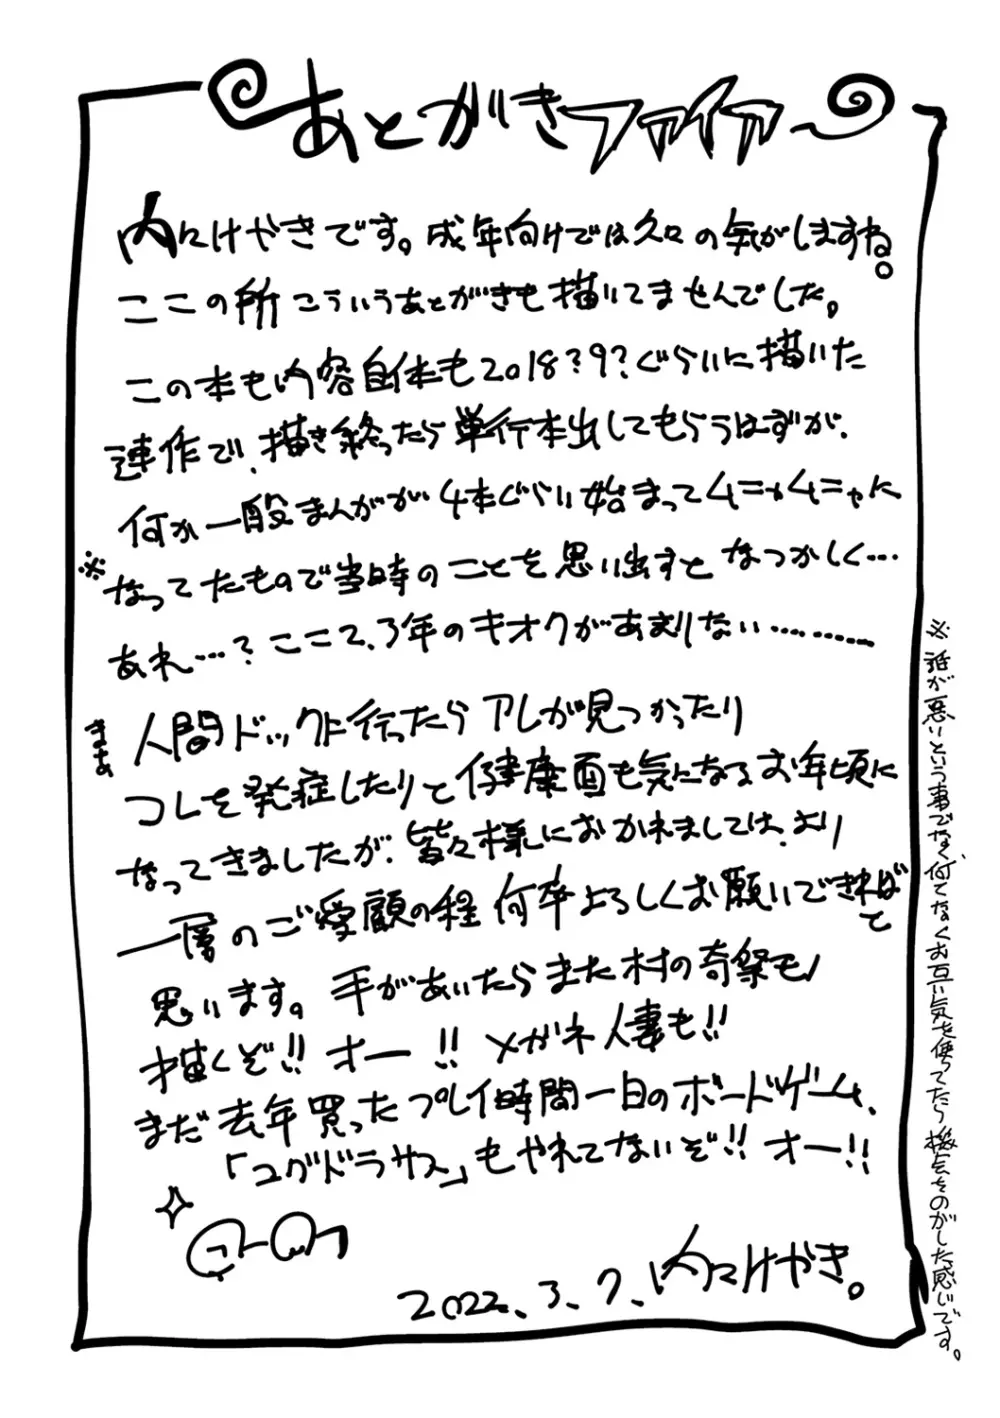 あとがきファイア
内々けやきです。成年向けでは久々の気がしますね。
ここの所こういうあとがきも描いてませんでした。
この本も内容自体も2018?9?ぐらいに描いた
連作で、描き終ったら単行本出してもらうはずが、
何か一般まんがが4本ぐらい始まってムニャムニャに
※なってたもので当時のことを思い出すとなつかしく…
あれ…?ここ2、3年のキオクがあまりない………
まあ人間ドックに行ったらアレが見つかったり
コレを発症したりと健康面も気になるお年頃に
なってきましたが、皆々様におかれましては、より
一層のご愛顧の程何卒よろしくお願いできればと
思います。手があいたらまた村の奇祭モノ
描くぞ!!オー!!メガネ人妻も!!
まだ去年買ったプレイ時間一日のボードゲーム、
「ユグドラサス」もやれてないぞ!!オー!!
2022、3、7、内々けやき。
※誰が悪いという事でなく、何てなくお互い気を使ってたら機会をのがした感じです。